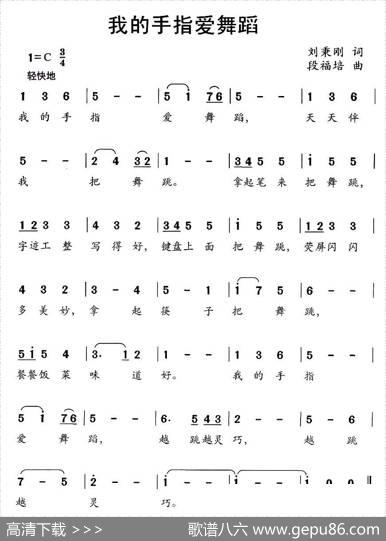 我的手指爱舞蹈
1=C 3/4
刘秉刚 词
轻快地
段福培 曲
1 3 6 | 5 - - | 5 1 76 | 5 - - | 1 3 6 |
我的手指 爱舞蹈, 天天伴
5 - - | 2 4 32 | 1 - - | 345 5 5 | i 5 5 |
我 把舞跳。 拿起笔来把舞跳,
123 3 3 | 4 3 2 | 345 5 5 | i 5 5 | 123 3 3 |
字迹工整 写得好, 键盘上面 把舞跳, 荧屏闪闪
4 3 2 | 3 - 4 | 5 - 5 | i 7 5 | 6 - - |
多美妙, 拿起筷子把舞跳,
5i5 4 | 3. 12 | 1 - - | 1 3 6 | 5 - - |
餐餐饭菜味道好。 我的手指
5 1 76 | 5 - - | 6. 543 | 2 - - | 5 - 6 |
爱舞蹈, 越跳越灵巧, 越跳
7 - 5 | 2 - - | i - - | i - - | i - - |
越灵巧。
高清下载 >>>
歌谱八六 www.gepu86.com